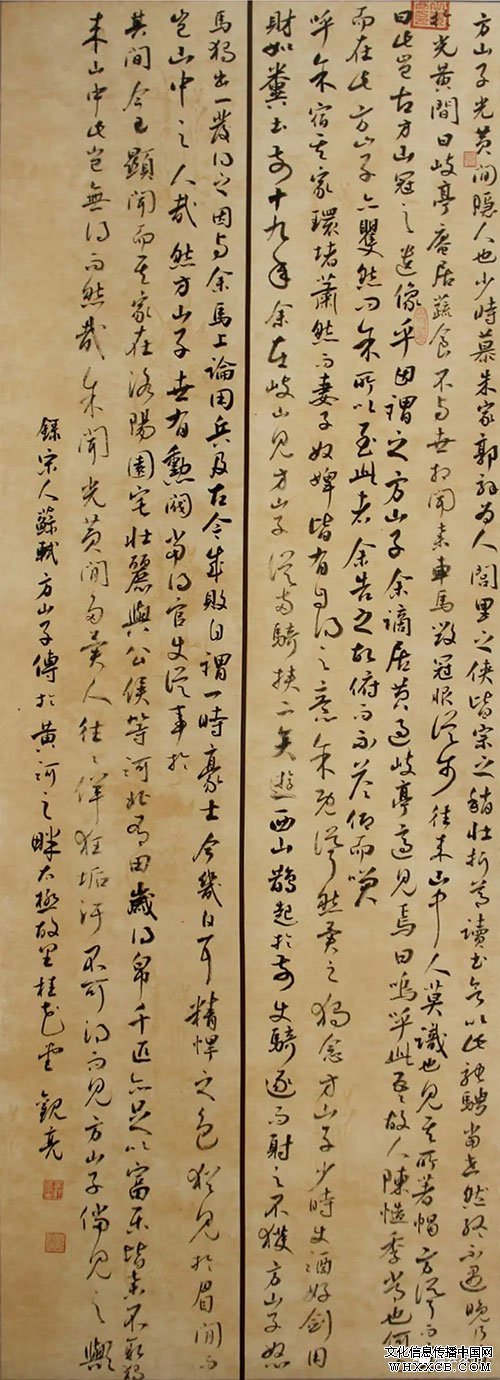 方山子光黃間隱人也少時慕朱家郭解為人閭里之俠皆宗之稍壯折節讀書欲以此馳騁當世然終不遇晚乃
於光黃間曰岐亭庵居蔬食不與世相聞棄車馬毀冠服徒步往來山中人莫識也見其所著帽方聳而高
曰此豈古方山冠之遺像乎因謂之方山子余謫居黃過岐亭適見焉曰嗚呼此吾故人陳慥季常也何
而在此方山子亦矍然問余所以至此者余告之故俯而不答仰而笑
呼余宿其家環堵蕭然而妻子奴婢皆有自得之意余既聳然異之獨念方山子少時使酒好劍用
財如糞土前十九年余在岐山見方山子從兩騎挾二矢遊西山鵲起於前使騎逐而射之不獲方山子怒
馬獨出一發得之因與余馬上論用兵及古今成敗自謂一時豪士今幾日耳精悍之色猶見於眉間而
豈山中之人哉然方山子世有勳閥當得官使從事於
其間今已顯聞而其家在洛陽園宅壯麗與公侯等河北有田歲得帛千匹亦足以富樂皆棄不取獨
來山中此豈無得而然哉余聞光黃間多異人往往佯狂垢汙不可得而見方山子倘見之歟
錄宋人蘇軾方山子傳於黃河之畔太極故里桂花堂 觀亮
文化信息传播中国网
WHXXCB.COM